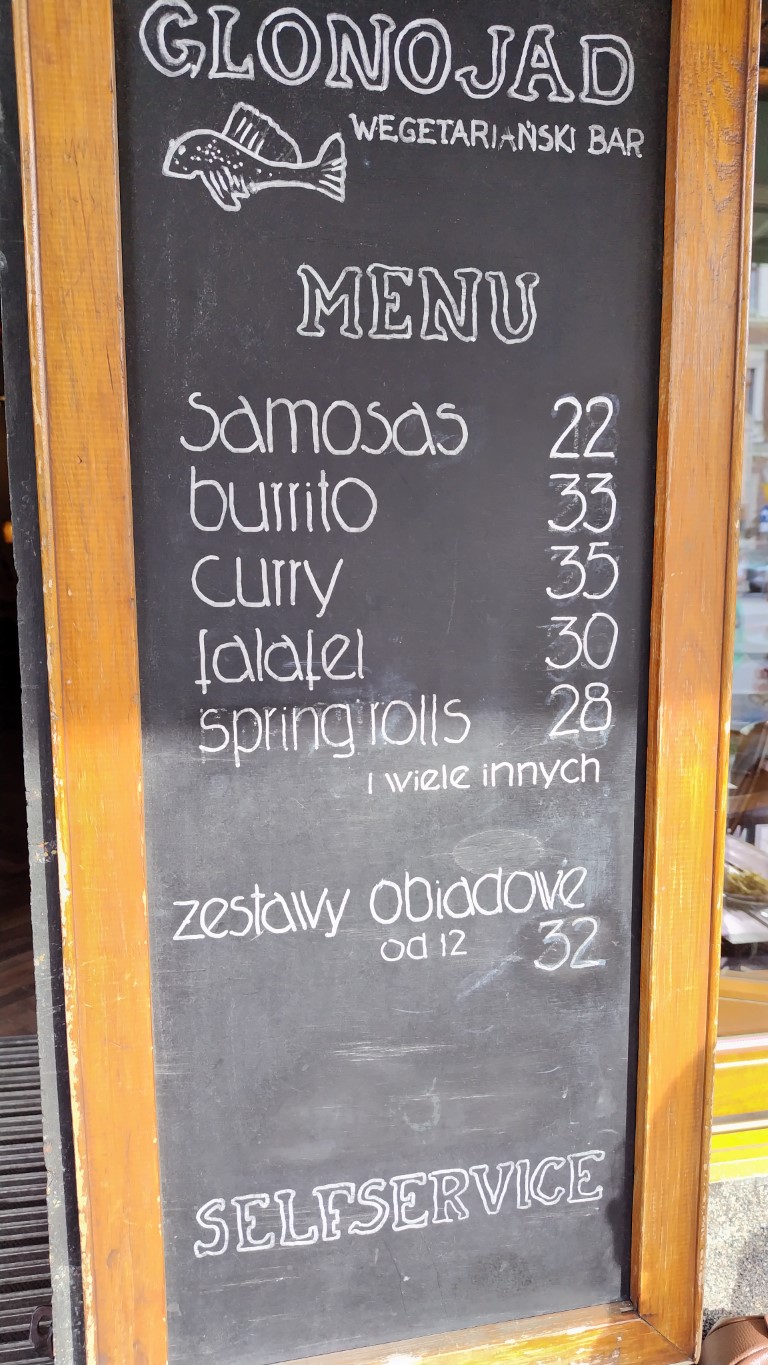 GLONOJAD
WEGETARIAŃSKI BAR
MENU
samosas 22
burrito 33
curry 35
falafel 30
spring rolls 28
i wiele innych
zestawy obiadowe
od 12 32
SELFSERVICE